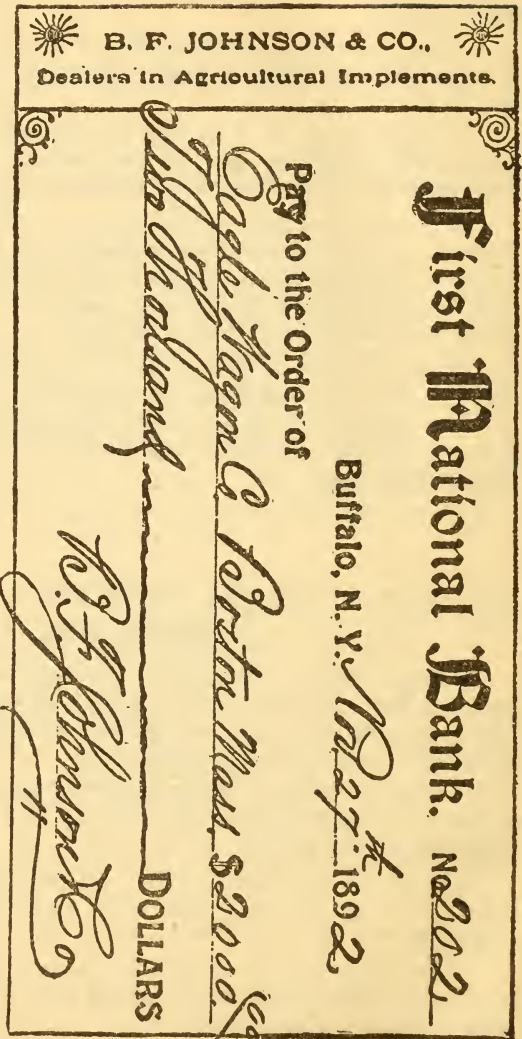 B. F. JOHNSON & CO.,
Dealers in Agricultural Implements.
First National Bank. No 202
Buffalo, N. Y. Nov 27th 1892
Pay to the Order of
Eagle Wagon Co Boston Mass. $2000.00
Two Thousand DOLLARS
B. F. Johnson & Co